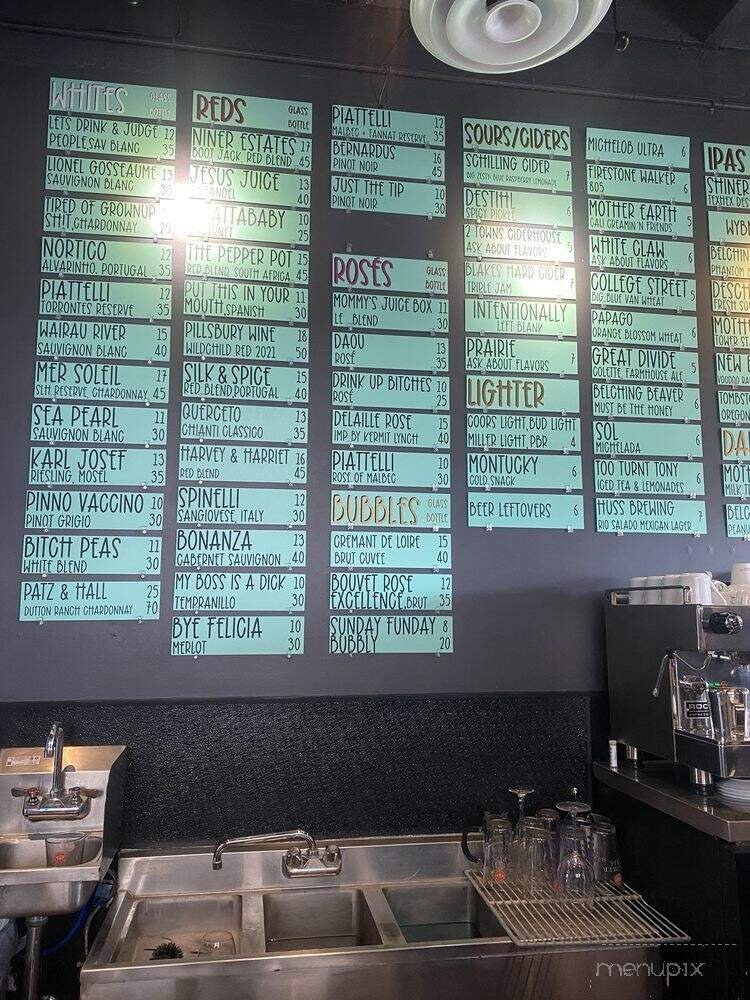 WHITES GLASS
BOTTLE
LETS DRINK & JUDGE 12
PEOPLE,SAV BLANC 35
LIONEL GOSSEAUME 13
SAUVIGNON BLANC 35
TIRED OF GROWNUP
SH!T,CHARDONNAY 25
NORTICO 11
ALVARINHO, PORTUGAL 35
PIATTELLI 12
TORRONTES RESERVE 35
WAIRAU RIVER 15
SAUVIGNON BLANC 40
MER SOLEIL 17
SLH, RESERVE, CHARDONNAY 45
SEA PEARL 11
SAUVIGNON BLANC 30
KARL JOSEF 13
RIESLING, MOSEL 35
PINNO VACCINO 10
PINOT GRIGIO 30
BITCH PEAS 11
WHITE BLEND 30
PATZ & HALL 25
DUTTON RANCH CHARDONNAY 70
REDS GLASS
BOTTLE
NINER ESTATES 17
BOOT JACK, RED BLEND 45
JESUS JUICE 13
40
10
25
THE PEPPER POT 15
RED BLEND, SOUTH AFRICA 45
PUT THIS IN YOUR 11
MOUTH,SPANISH 30
PILLSBURY WINE 18
WILDCHILD RED 2021 50
SILK & SPICE 15
RED BLEND,PORTUGAL 40
QUERCETO 13
CHIANTI CLASSICO 35
HARVEY & HARRIET 16
RED BLEND 45
SPINELLI 12
SANGIOVESE, ITALY 30
BONANZA 13
CABERNET SAUVIGNON 40
MY BOSS IS A DICK 10
TEMPRANILLO 30
BYE FELICIA 10
MERLOT 30
PIATTELLI 12
MALBEC + TANNAT RESERVE 35
BERNARDUS 16
PINOT NOIR 45
JUST THE TIP 10
PINOT NOIR 30
ROSÉS GLASS
BOTTLE
MOMMY'S JUICE BOX 11
LE BLEND 30
DAOU 13
ROSÉ 35
DRINK UP BITCHES 10
ROSÉ 25
DELAILLE ROSE 15
IMP BY KERMIT LYNCH 40
PIATTELLI 10
ROSE OF MALBEC 30
BUBBLES GLASS
BOTTLE
CREMANT DE LOIRE 15
BRUT CUVEE 40
BOUVET ROSE 12
EXCELLENCE,BRUT 35
SUNDAY FUNDAY 8
BUBBLY 20
SOURS/CIDERS
SCHILLING CIDER 7
BIG ZESTY BLUE RASPBERRY LEMONADE
DESTIHL 6
SPICY PICKLE
2 TOWNS CIDERHOUSE
ASK ABOUT FLAVORS 5
BLAKES HARD CIDER 7
TRIPLE JAM
INTENTIONALLY
LEFT BLANK
PRAIRIE 7
ASK ABOUT FLAVORS
LIGHTER
COORS LIGHT,BUD LIGHT
MILLER LIGHT,PBR 4
MONTUCKY 6
COLD SNACK
BEER LEFTOVERS 6
MICHELOB ULTRA 6
FIRESTONE WALKER 6
805
MOTHER EARTH 5
CALI CREAMIN'N FRIENDS
WHITE CLAW 6
ASK ABOUT FLAVORS
COLLEGE STREET 5
BIG BLUE VAN WHEAT
PAPAGO 6
ORANGE BLOSSOM WHEAT
GREAT DIVIDE 5
COLETTE, FARMHOUSE ALE
BELCHING BEAVER 6
MUST BE THE HONEY
SOL 6
MICHELADA
TOO TURNT TONY 6
ICED TEA & LEMONADES
HUSS BREWING 7
RIO SALADO MEXICAN LAGER
IPAS
SHINER
BELCHIN
PHANTOM
MOTH
TOWER ST
NEW
VOODOO
TOMBST
OREGO
DA
MOTH
MILK
BELC
PEANU
ROC
menupix